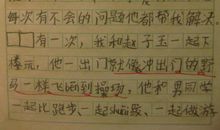 每次有不会的问题他都帮我解决。
有一次，我和赵子玉一起下
楼玩，他一出门就像冲出门的野
马一样飞跑到操场，他和男同学
一起比跑步、一起、一起做游